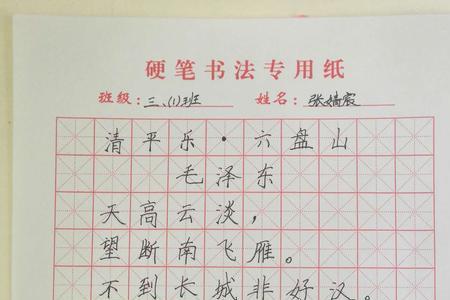 硬笔书法专用纸
班级:三、(1)班 姓名:张婧宸
清平乐·六盘山
毛泽东
天高云淡,
望断南飞雁。
不到长城非好汉。